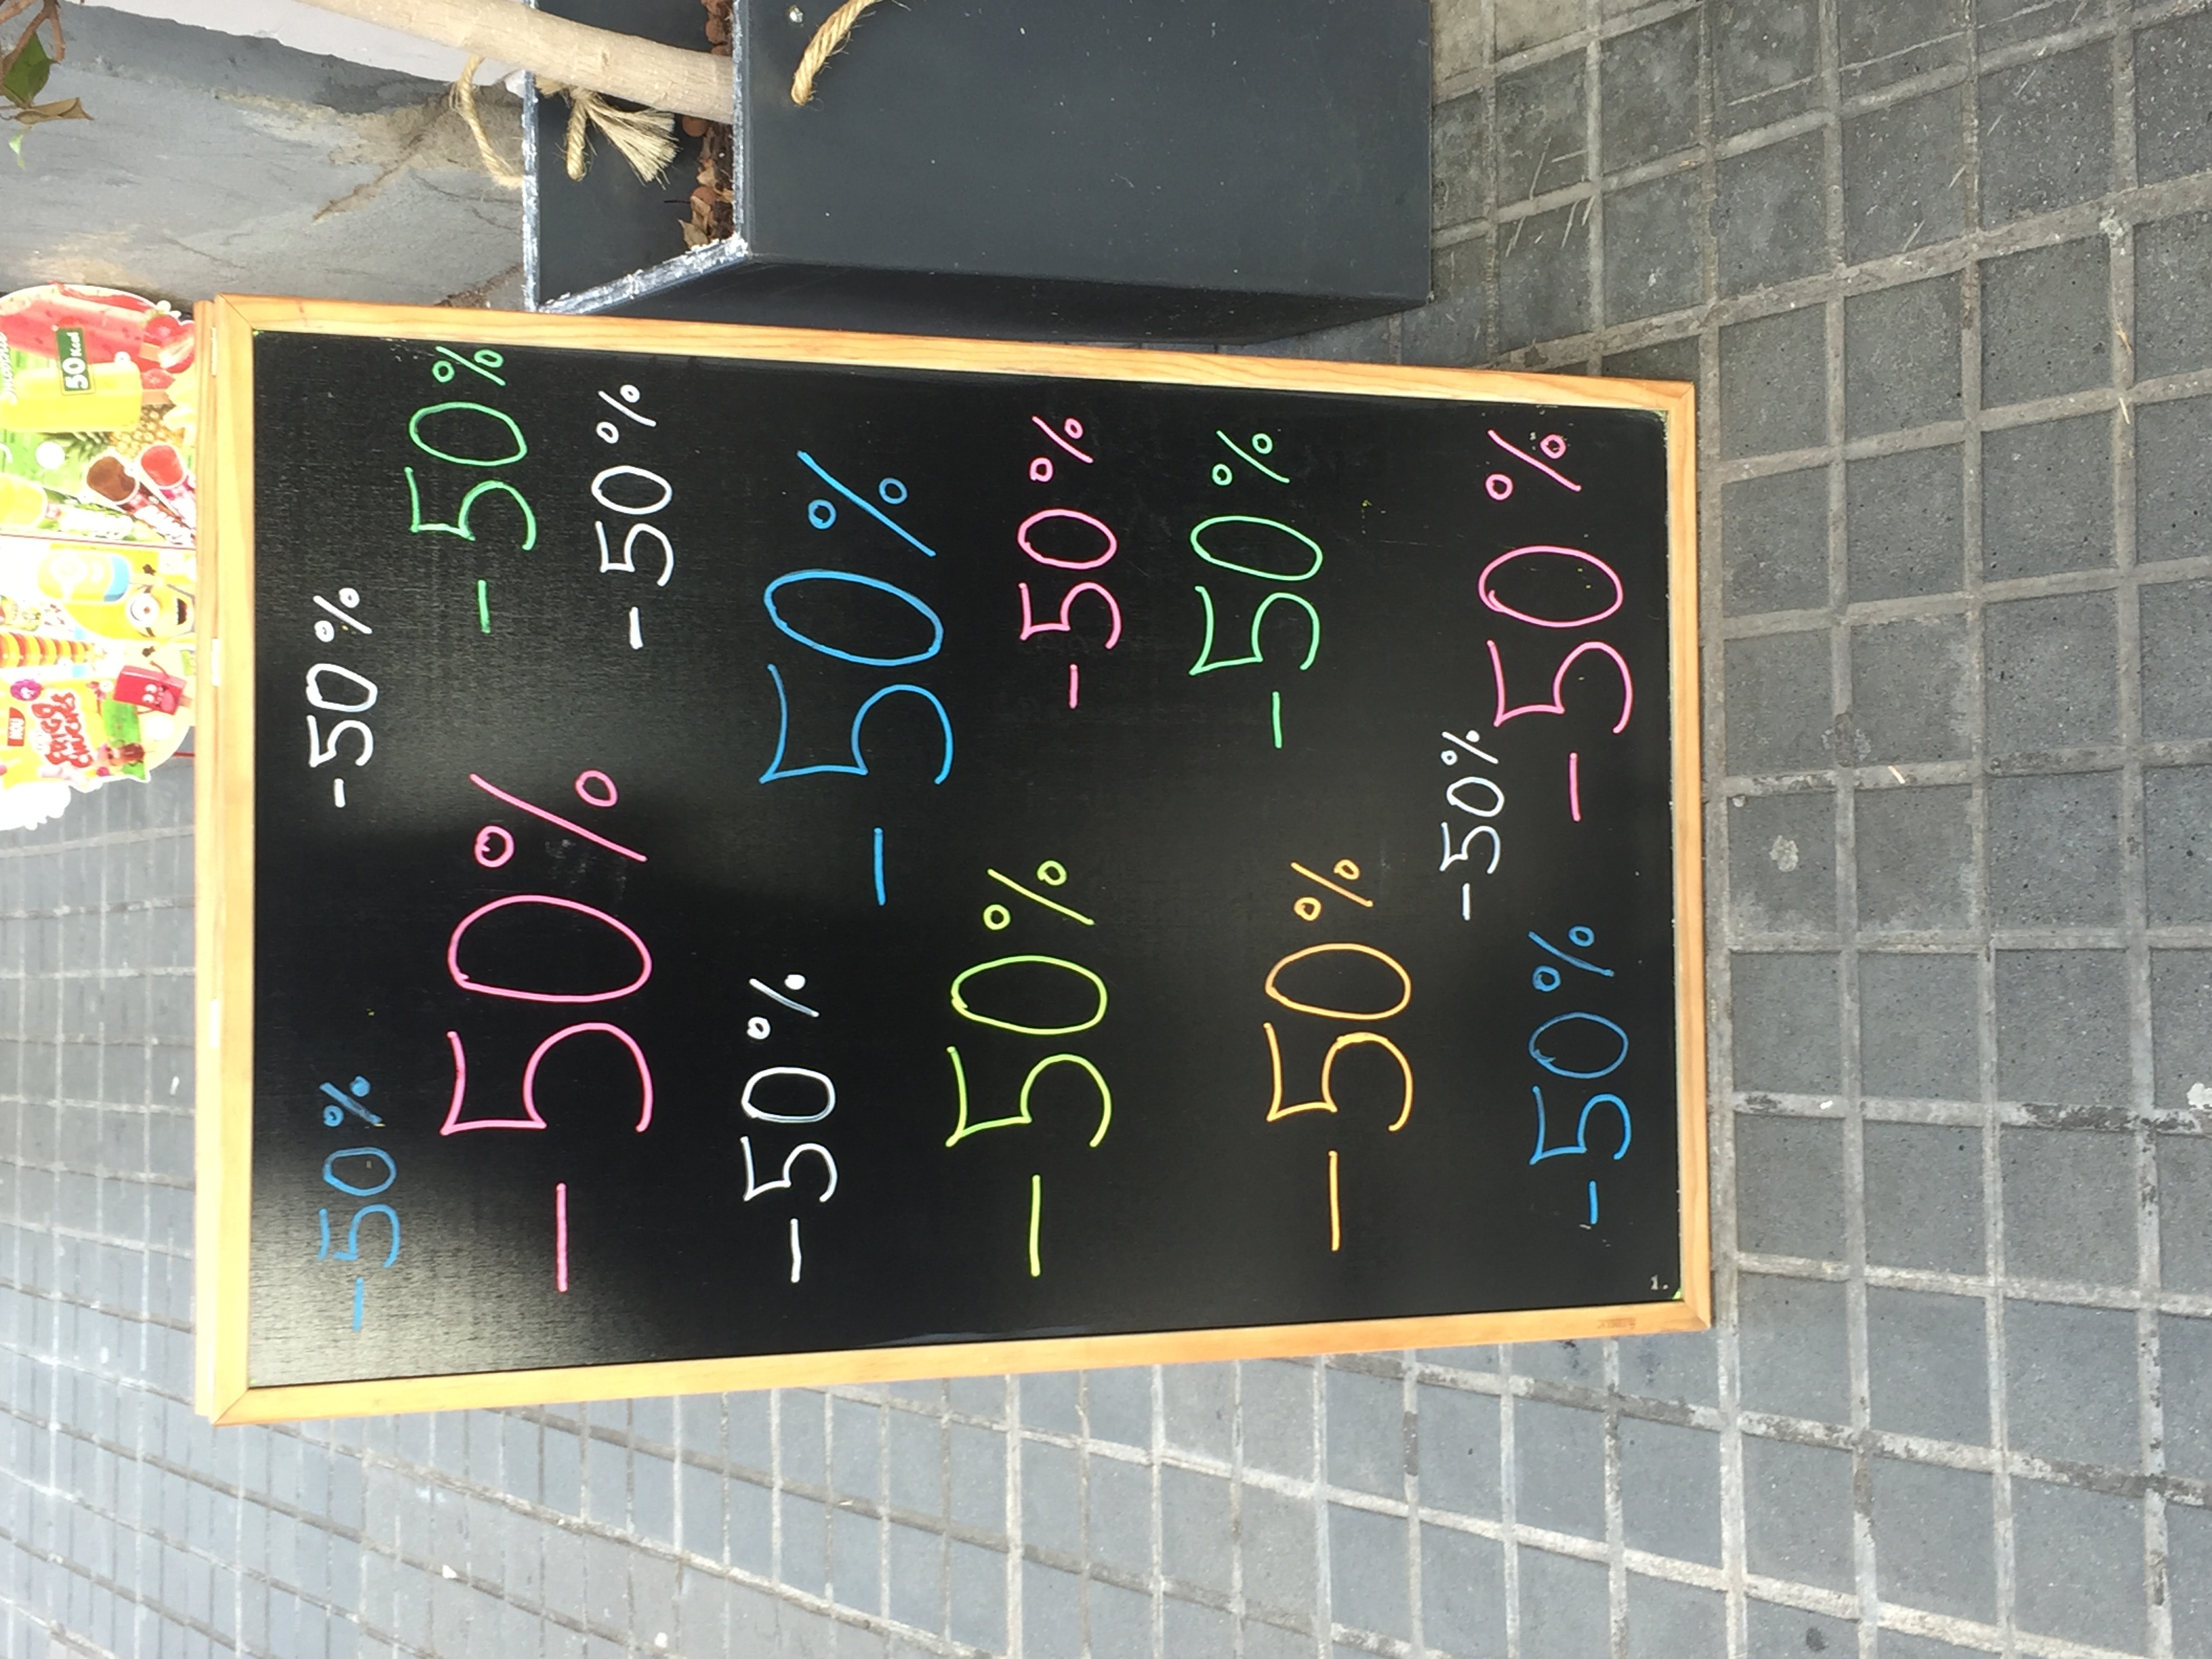 50 Kcal
NOU
-50%
-50%
-50%
-50%
-50%
-50%
-50%
-50%
-50%
-50%
-50%
-50%
-50%
-50%